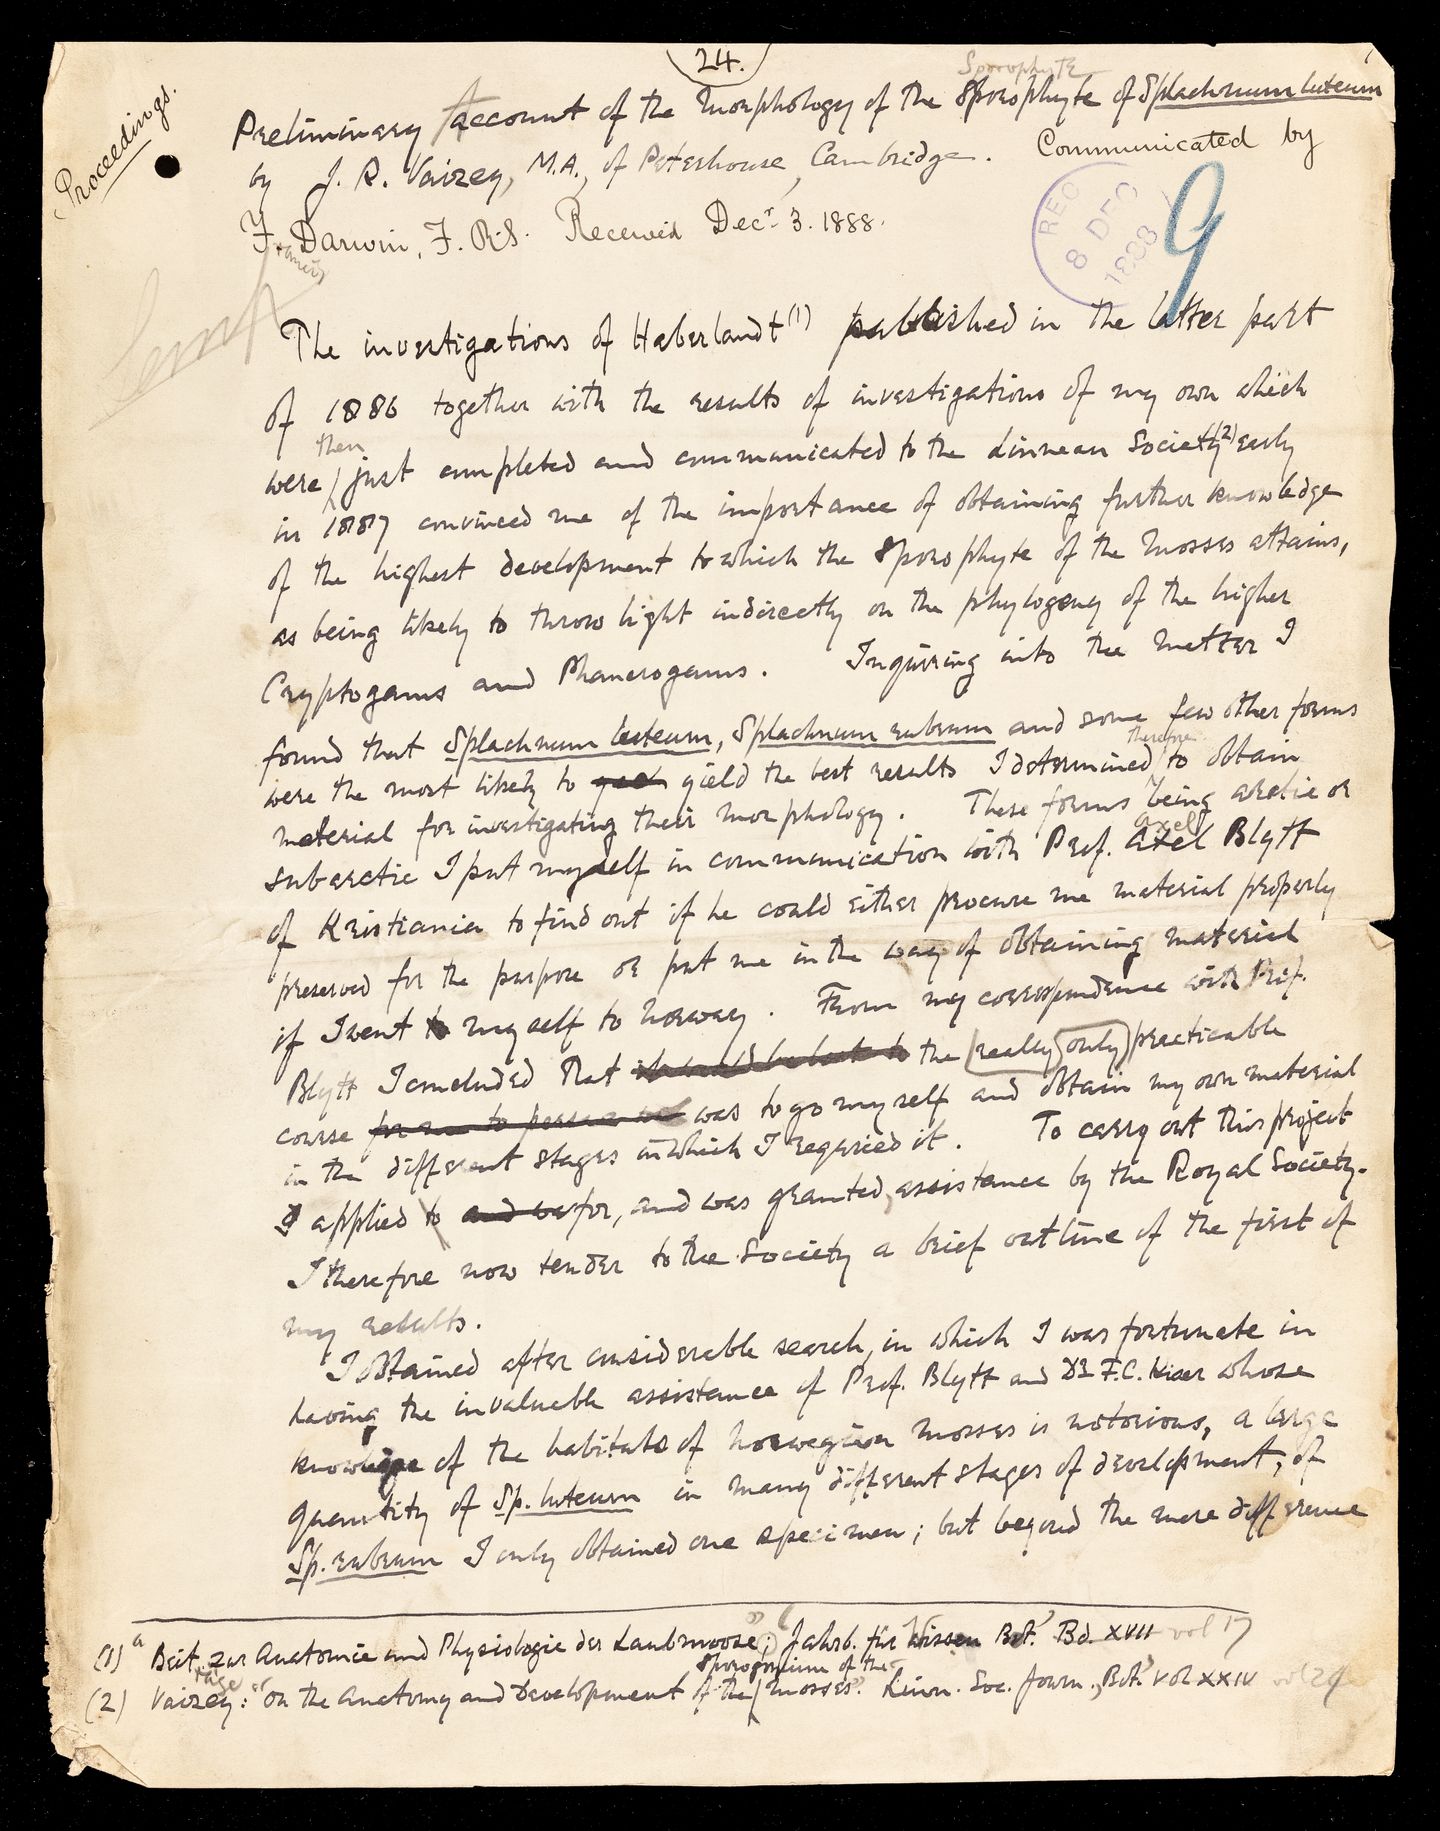 24.
Proceedings.
Sporophyte
Preliminary Account of the Morphology of the Sporophyte of Splachnum luteum
by J. R. Vaizey, M.A., of Peterhouse, Cambridge. Communicated by
F. Darwin, F.R.S. Received Decr. 3. 1888.
Francis
REC
8 DEC
1888
9
The investigations of Haberlandt (1) published in the latter part
of 1886 together with the results of investigations of my own which
then
were just completed and communicated to the Linnean Society (2) early
in 1887 convinced me of the importance of obtaining further knowledge
of the highest development to which the Sporophyte of the Mosses attains,
as being likely to throw light indirectly on the phylogeny of the higher
Cryptogams and Phanerogams. Inquiring into the matter I
found that Splachnum luteum, Splachnum rubrum and some few other forms
therefore
were the most likely to yield the best results I determined to obtain
material for investigating their morphology. These forms being arctic or
Axel
subarctic I put myself in communication with Prof. Axel Blytt
of Kristiania to find out if he could either procure me material properly
preserved for the purpose or put me in the way of obtaining material
if I went to myself to Norway. From my correspondence with Prof.
Blytt I concluded that the really only practicable
course was to go myself and obtain my own material
in the different stages in which I required it. To carry out this project
I applied to and was for, and was granted, assistance by the Royal Society.
I therefore now tender to the Society a brief outline of the first of
my results.
I obtained after considerable search, in which I was fortunate in
having the invaluable assistance of Prof. Blytt and Dr F.C. Kiaer whose
knowledge of the habitats of Norwegian Mosses is notorious, a large
quantity of Sp. luteum in many different stages of development; of
Sp. rubrum I only obtained one specimen; but beyond the mere difference
(1) Beit. zur Anatomie und Physiologie der Laubmoose; Jahrb. für Wissen Bot. Bd. XVII vol 17
sporogonium of the
(2) Vaizey: "On the Anatomy and Development of the Mosses". Linn. Soc. Journ., Bot. Vol XXIV vol 24